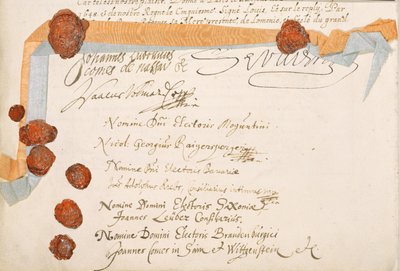 1648. de nostre Regne le Cinquiesme. Signé Louis. Et sur le reply, Par
de Lomenie
Johannes Ludovicus
comes de Nassau
Servien
Isaacus Volmar
Nomine Dni Electoris Moguntini
Nicol. Georgius Raigersperger
Nomine Dni Electoris Bavariæ
Joan Adolphus Krebs, consiliarius intimus
Nomine Domini Electoris Saxoniæ
Joannes Leuber Consiliarius.
Nomine Domini Electoris Brandenburgici
Joannes Comes in Sain et Wittgenstein